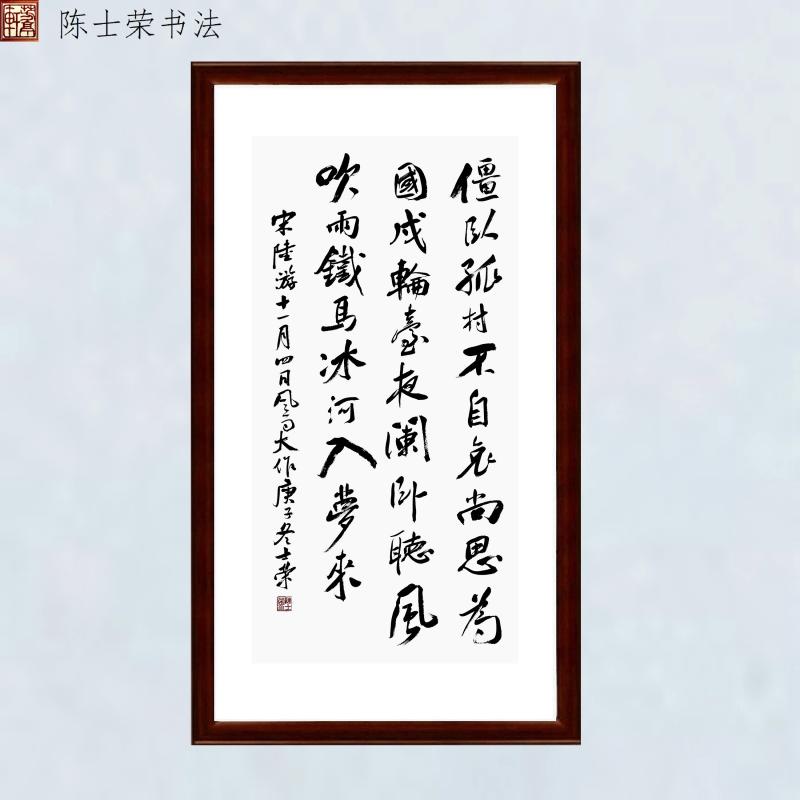 陈士荣书法
僵臥孤村不自哀尚思為
國戍輪臺夜闌卧聽風
吹雨鐵馬冰河入夢來
宋陸游十一月四日風雨大作庚子冬士榮